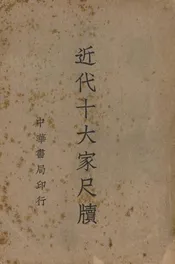 近代十大家尺牘
中華書局印行